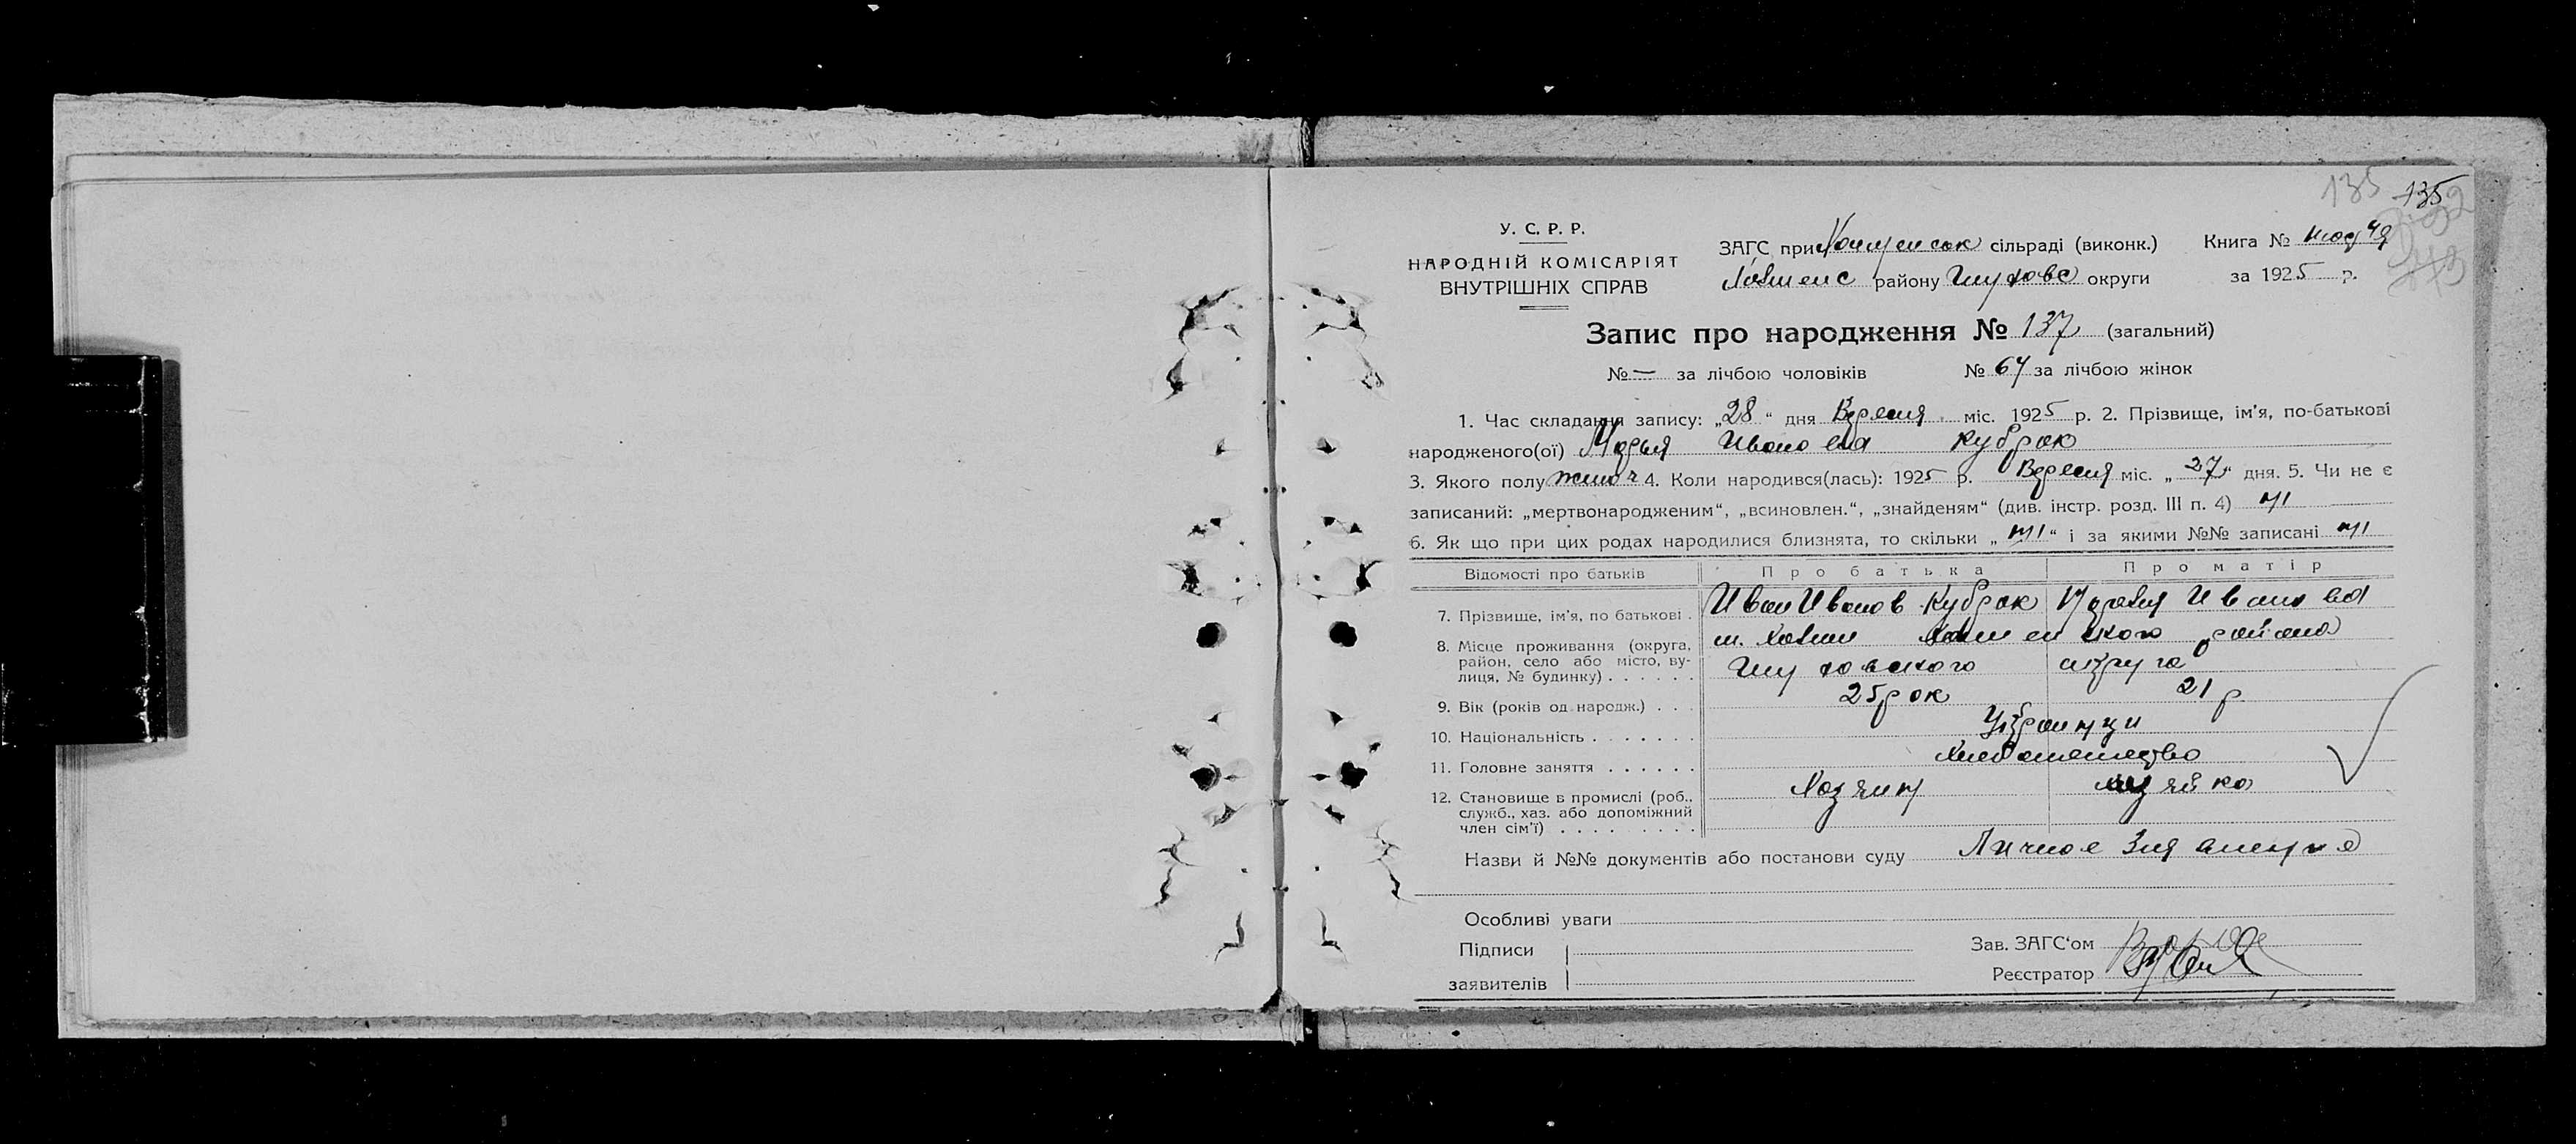 135 135
У. С. Р. Р.
НАРОДНІЙ КОМІСАРІЯТ
ВНУТРІШНІХ СПРАВ
ЗАГС при сільраді (виконк.)
району округи
Книга №
за 1925 р.
Запис про народження № 137 (загальний)
№ — за лічбою чоловіків № 64 за лічбою жінок
1. Час складання запису: „28“ дня Вересня міс. 1925 р. 2. Прізвище, ім’я, по-батькові
народженого(ої) Марья Ивановна Кубрак
3. Якого полу жіноч 4. Коли народився(лась): 1925 р. Вересня міс. „27“ дня. 5. Чи не є
записаний: „мертвонародженим“, „всиновлен.“, „знайденям“ (див. інстр. розд. III п. 4) ні
6. Як що при цих родах народилися близнята, то скільки „ні“ і за якими №№ записані ні
Відомості про батьків Про батька Про матір
7. Прізвище, ім’я, по батькові . Иван Иванов Кубрак Ивановна
8. Місце проживання (округа, район, село або місто, вулиця, № будинку) . . . . . . района
округа
9. Вік (років од народж.) . . . 25 рок 21 р
10. Національність . . . . . . . Украинци
11. Головне заняття . . . . . . Хлебопашество
12. Становище в промислі (роб., служб., хаз. або допоміжний член сім’ї) . . . . . . . . . Хозяин хозяйка
Назви й №№ документів або постанови суду Личное Заявление
Особливі уваги
Підписи
заявителів
Зав. ЗАГС‘ом
Реєстратор